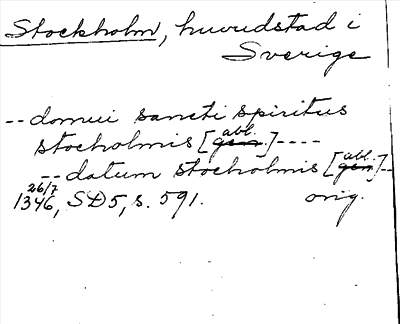 Stockholm, huvudstad i
Sverige
-- domui sancti spiritus
stocholmis [gen. abl.] ----
-- datum stocholmis [gen. abl.] --
26/7 1346, SD5, s. 591. orig.